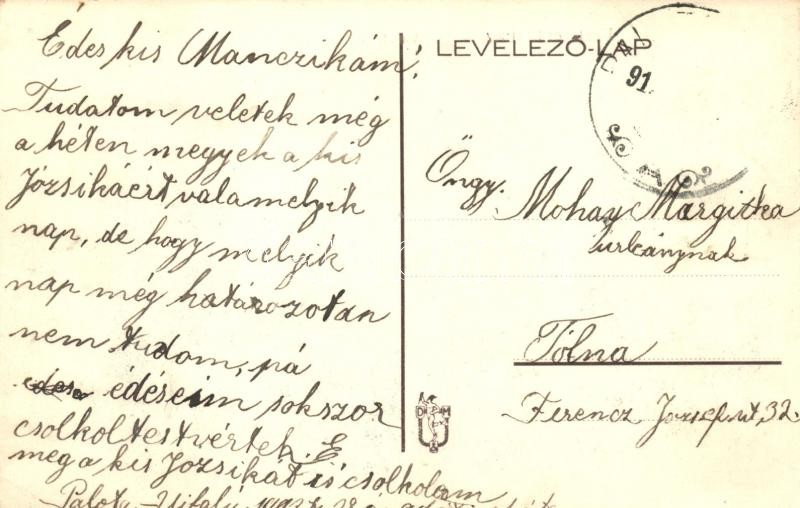 Édes kis Manczikám!
Tudatom veletek még
a héten megyek a kis
Józsikáért valamelyik
nap, de hogy melyik
nap még határozotan
nem tudom, pá
édéseim sokszor
csolkol testvértek. E
meg a kis Jozsikat is csolkolom
Palota-Ujfalu
LEVELEZŐ-LAP
91
Öngy. Mohay Margitka
urleánynak
Tólna
Ferencz József ut, 32.